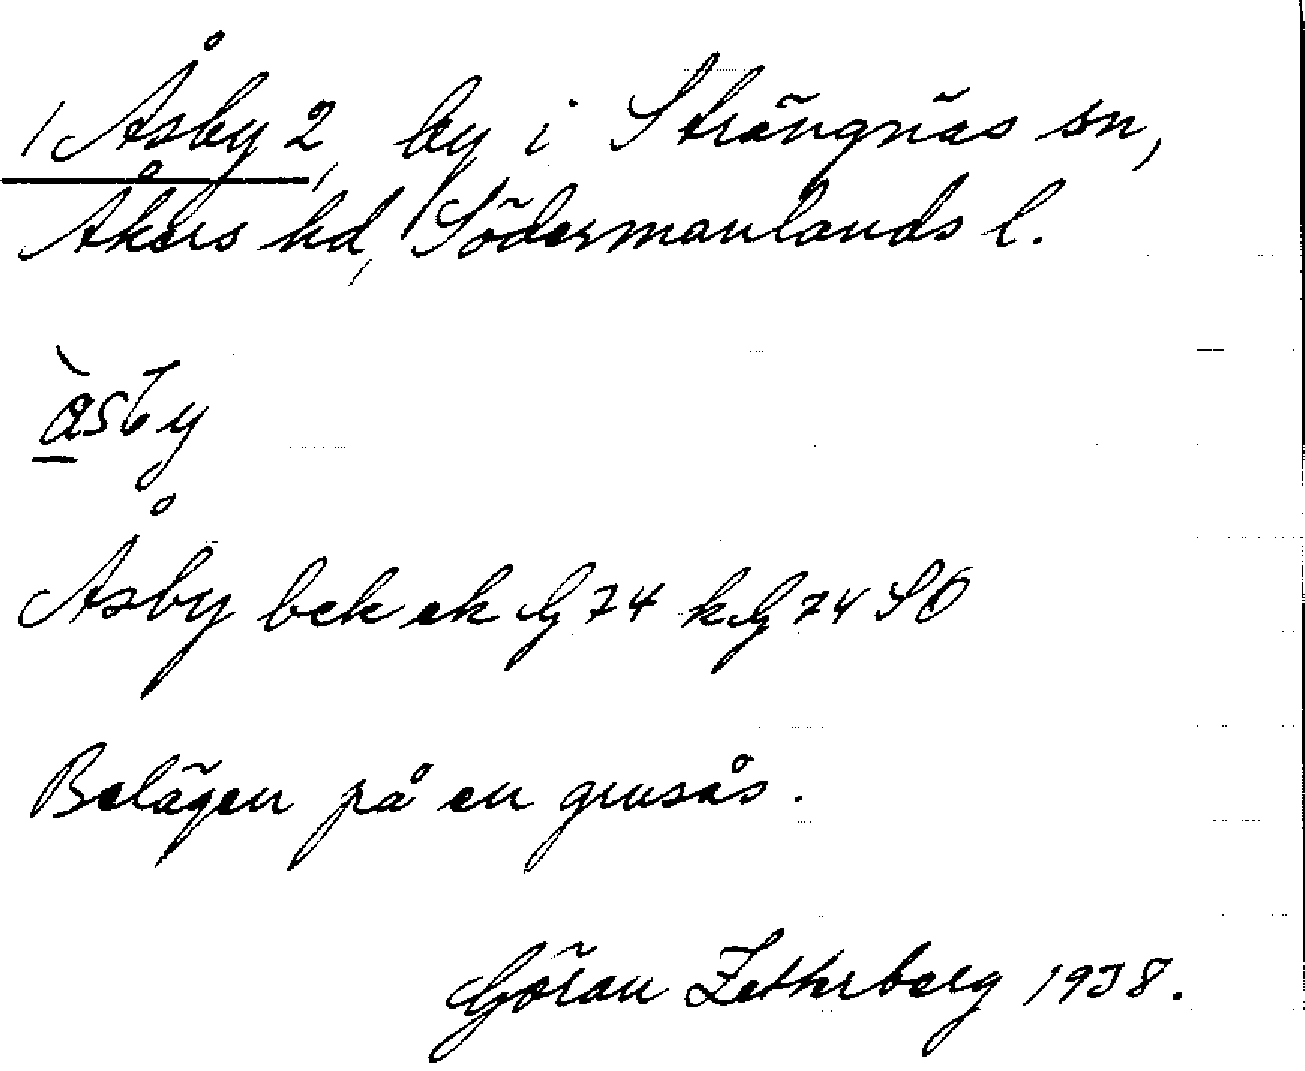 1 Åsby 2, by i Strängnäs sn,
Åkers hd, Södermanlands l.
àsby
Åsby bek ek G 74 k G 74 SO
Belägen på en grusås.
Göran Zetherberg 1938.